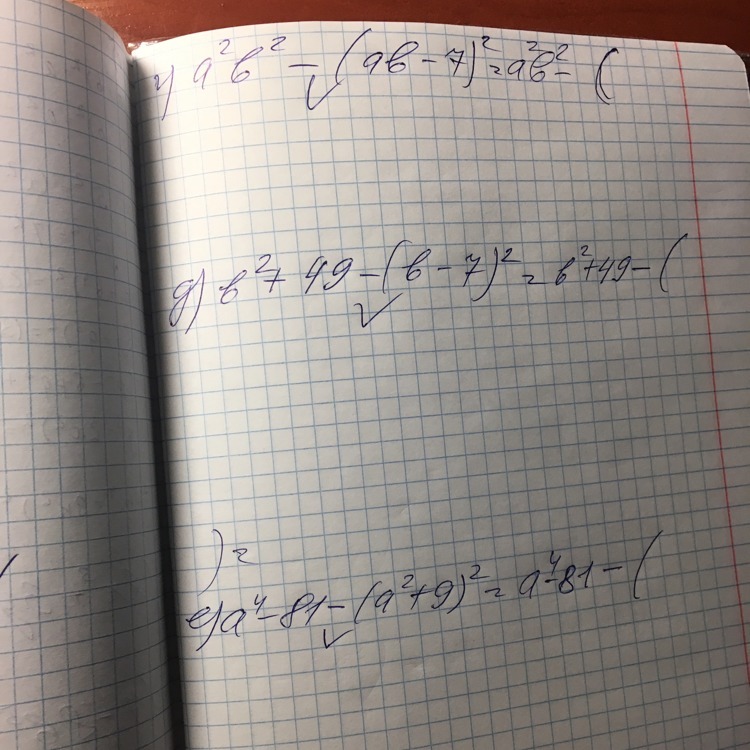 г) a²b² - (ab - 7)² = a²b² - (
д) b² + 49 - (b - 7)² = b² + 49 - (
) =
е) a⁴ - 81 - (a² + 9)² = a⁴ - 81 - (